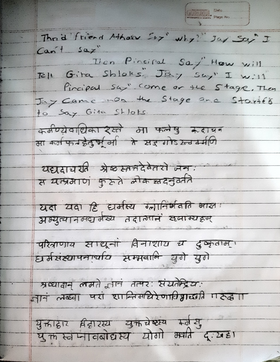 Third friend Athaev Say" why?" Jay Say" I
Can't Say"
Then Pincipal Say" How will
Tell Gita Shloks". Jay Say" I will
Pincipal Say" Come on the Stage. Then
Jay Came on the Stage and Started
to Say Gita Shloks
कर्मण्येवाधिका रस्ते मा फलेषु कदाचन
मा कर्मफलहेतुर्भूर्मा ते सङ्गोऽस्त्वकर्मणि
यद्यदाचरति श्रेष्ठस्तत्तदेवेतरो जनः
स यत्प्रमाणं कुरुते लोकस्तदनुवर्तते
यदा यदा हि धर्मस्य ग्लानिर्भवति भारत
अभ्युत्थानमधर्मस्य तदात्मानं सृजाम्यहम्
परित्राणाय साधूनां विनाशाय च दुष्कृताम्
धर्मसंस्थापनार्थाय सम्भवामि युगे युगे
श्रद्धावान् लभते ज्ञानं तत्परः संयतेन्द्रियः
ज्ञानं लब्ध्वा परां शान्तिमचिरेणाधिगच्छति
युक्ताहार विहारस्य युक्तचेष्टस्य कर्मसु
युक्तस्वप्नावबोधस्य योगो भवति दुःखहा